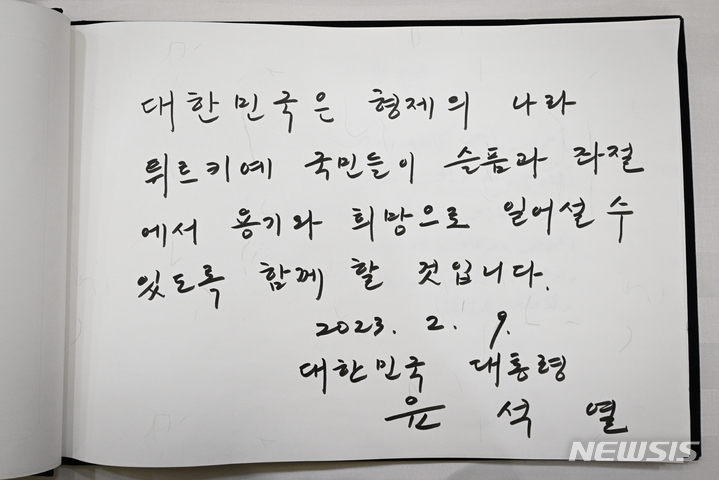 대한민국은 형제의 나라
튀르키예 국민들이 슬픔과 좌절
에서 용기와 희망으로 일어설 수
있도록 함께 할 것입니다.
2023. 2. 9.
대한민국 대통령
윤 석 열
NEWSIS